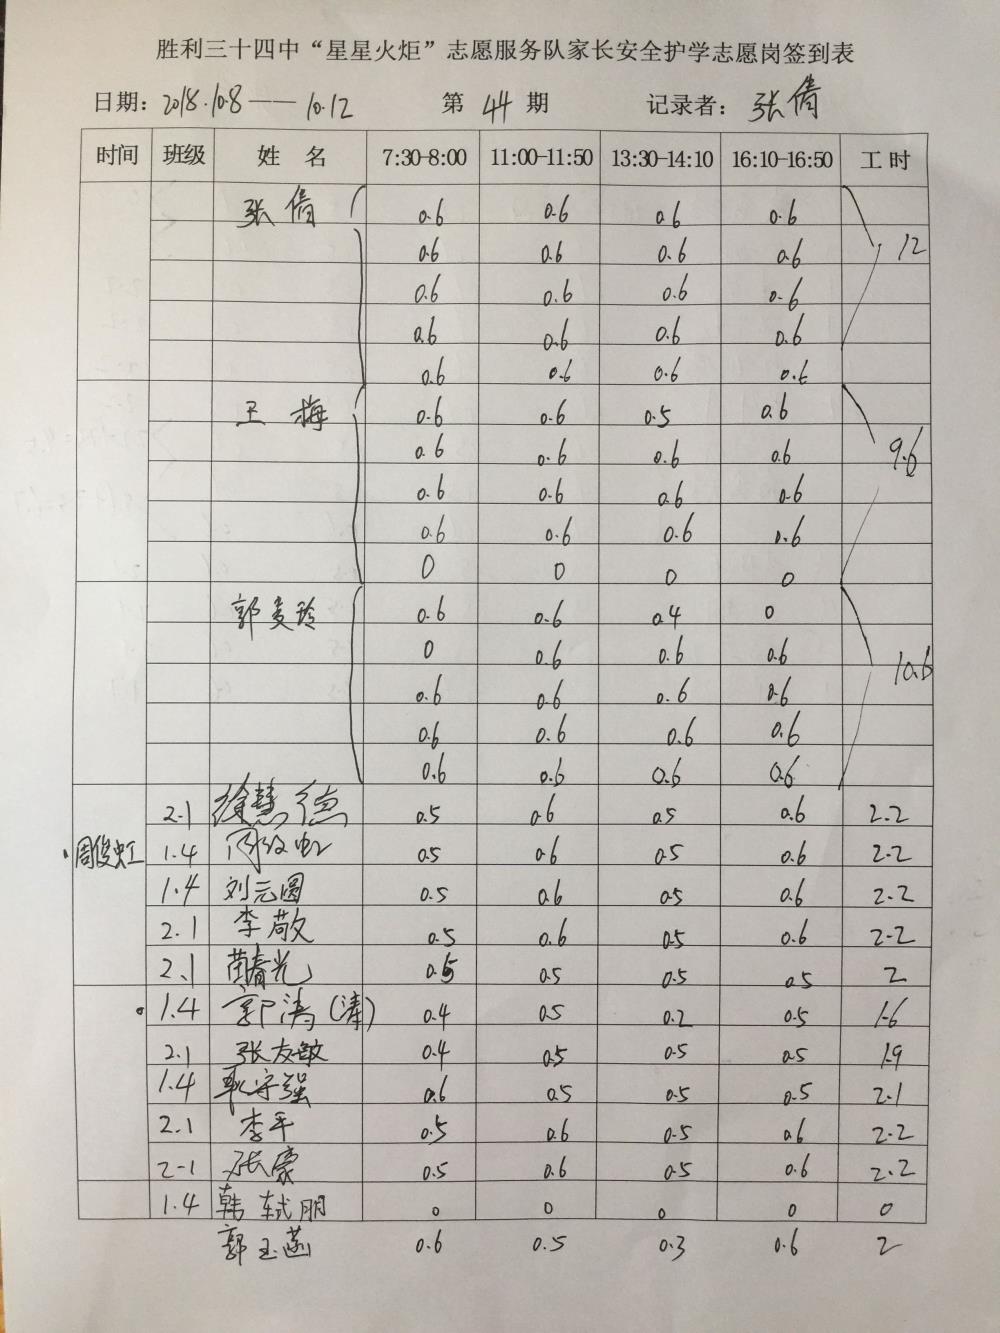 胜利三十四中“星星火炬”志愿服务队家长安全护学志愿岗签到表
日期: 2018.10.8——10.12 第 44 期 记录者: 张倩
时间 班级 姓 名 7:30-8:00 11:00-11:50 13:30-14:10 16:10-16:50 工时
张倩 0.6 0.6 0.6 0.6
0.6 0.6 0.6 0.6 12
0.6 0.6 0.6 0.6
0.6 0.6 0.6 0.6
0.6 0.6 0.6 0.6
王梅 0.6 0.6 0.5 0.6
0.6 0.6 0.6 0.6 9.6
0.6 0.6 0.6 0.6
0.6 0.6 0.6 0.6
0 0 0 0
郭麦玲 0.6 0.6 0.4 0
0 0.6 0.6 0.6 10.6
0.6 0.6 0.6 0.6
0.6 0.6 0.6 0.6
0.6 0.6 0.6 0.6
2.1 徐慧德 0.5 0.6 0.5 0.6 2.2
周俊虹 1.4 周俊虹 0.5 0.6 0.5 0.6 2.2
1.4 刘元圆 0.5 0.6 0.5 0.6 2.2
2.1 李敬 0.5 0.6 0.5 0.6 2.2
2.1 春光 0.5 0.5 0.5 0.5 2
1.4 郭涛(涛) 0.4 0.5 0.2 0.5 1.6
2.1 张友敏 0.4 0.5 0.5 0.5 1.9
1.4 耿守强 0.6 0.5 0.5 0.5 2.1
2.1 李平 0.5 0.6 0.5 0.6 2.2
2-1 张豪 0.5 0.6 0.5 0.6 2.2
1.4 韩轼朋 0 0 0 0 0
郭玉菡 0.6 0.5 0.3 0.6 2